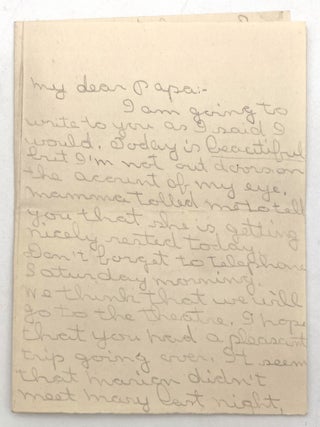 My dear Papa:-
I am going to
write to you as I said I
would. Today is beautiful
but I'm not out doors on
the account of my eye.
Mamma tolled me to tell
you that she is getting
nicely rested today.
Don't forget to telephone
Saturday morning.
We think that we will
go to the theatre. I hope
that you had a pleasant
trip going over. It seem
that Marion didn't
meet Mary last night,